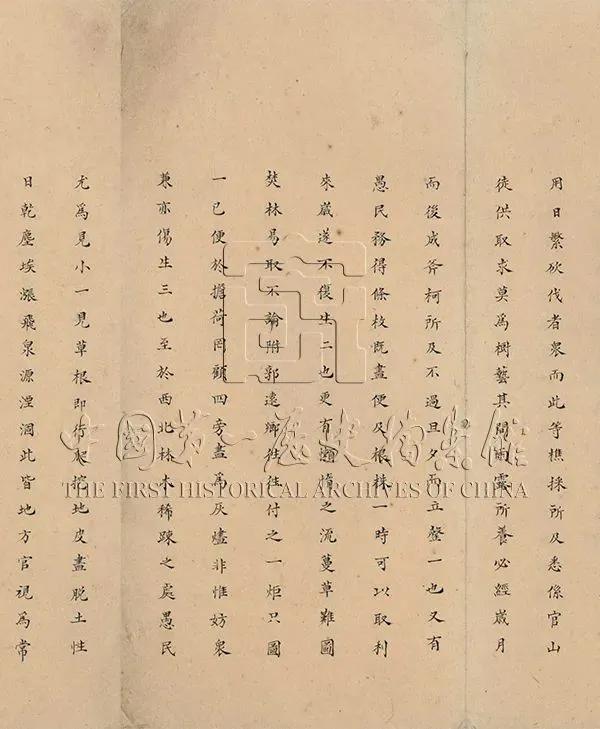 用日繁砍伐者衆而此等樵採所及悉係官山
徒供取求莫為樹藝其間雨露所養必經歲月
而後成斧柯所及不過旦夕而立罄一也又有
愚民務得條枝既盡便及根株一時可以取利
來歲遂不復生二也更有惰之流蔓草難圖
焚林易取不論附郭遠鄉往往付之一炬只圖
一己便於擔荷罔顧四旁盡為灰燼非惟妨衆
兼亦傷生三也至於西北林木稀踈之處愚民
尤為見小一見草根即行爬挖地皮盡脫土性
日乾塵埃漲飛泉源湮涸此皆地方官視為常
中国第一歷史档案館
THE FIRST HISTORICAL ARCHIVES OF CHINA